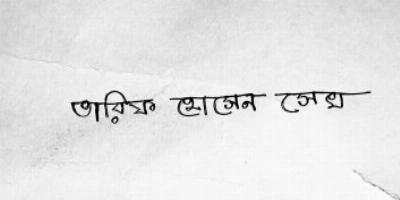 তারিফ হোসেন সেখ